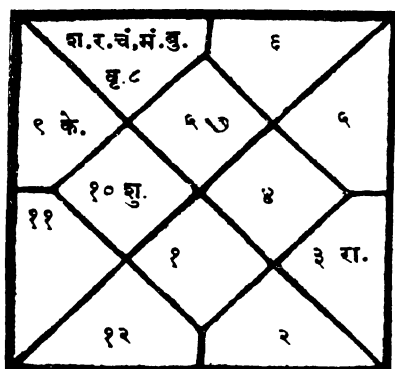 श.र.चं,मं.बु.
वृ.८
६
९ के.
७
५
१० शु.
४
११
१
३ रा.
१२
२